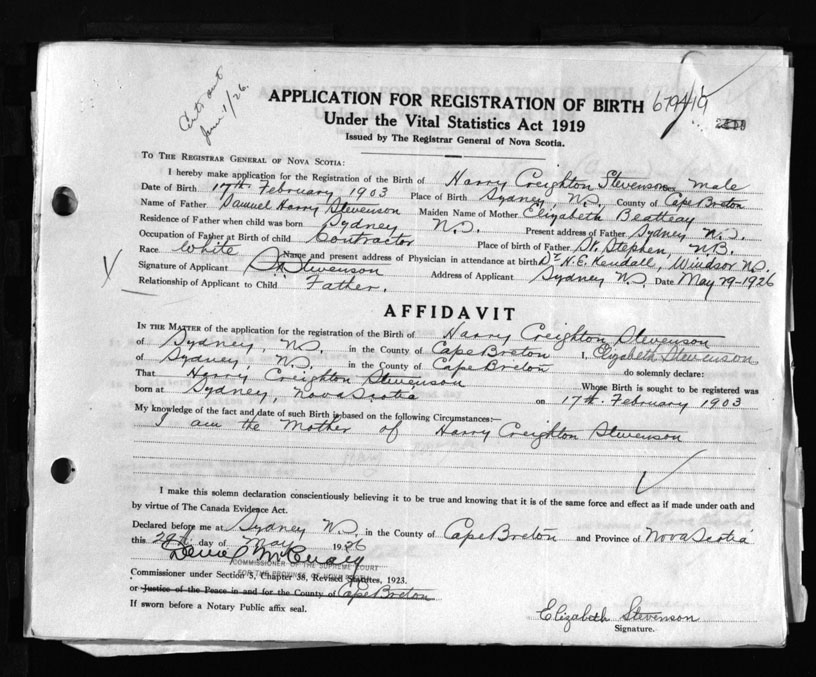 Cert. out
June 1/26.
APPLICATION FOR REGISTRATION OF BIRTH
Under the Vital Statistics Act 1919
Issued by The Registrar General of Nova Scotia.
TO THE REGISTRAR GENERAL OF NOVA SCOTIA:
I hereby make application for the Registration of the Birth of Harry Creighton Stevenson Sex male
Date of Birth 17th February 1903 Place of Birth Sydney, N.S., County of Cape Breton
Name of Father Samuel Harry Stevenson Maiden Name of Mother Elizabeth Beatteay
Residence of Father when child was born Sydney N.S. Present address of Father Sydney N.S.
Occupation of Father at Birth of child Contractor Place of birth of Father St. Stephen, N.B.
Race White Name and present address of Physician in attendance at birth Dr H.E. Kendall, Windsor N.S.
Signature of Applicant Stevenson Address of Applicant Sydney N.S. Date May 29-1926
Relationship of Applicant to Child Father.
AFFIDAVIT
IN THE MATTER of the application for the registration of the Birth of Harry Creighton Stevenson
of Sydney, N.S. in the County of Cape Breton I, Elizabeth Stevenson
of Sydney, N.S. in the County of Cape Breton do solemnly declare:
That Harry Creighton Stevenson Whose Birth is sought to be registered was
born at Sydney, Nova Scotia on 17th February 1903
My knowledge of the fact and date of such Birth is based on the following Circumstances:—
I am the Mother of Harry Creighton Stevenson
I make this solemn declaration conscientiously believing it to be true and knowing that it is of the same force and effect as if made under oath and
by virtue of The Canada Evidence Act.
Declared before me at Sydney N.S. in the County of Cape Breton and Province of Nova Scotia
this 29th day of May 1926
COMMISSIONER OF THE SUPREME COURT
Commissioner under Section 5, Chapter 38, Revised Statutes, 1923.
or Justice of the Peace in and for the County of Cape Breton
If sworn before a Notary Public affix seal.
Elizabeth Stevenson
Signature.